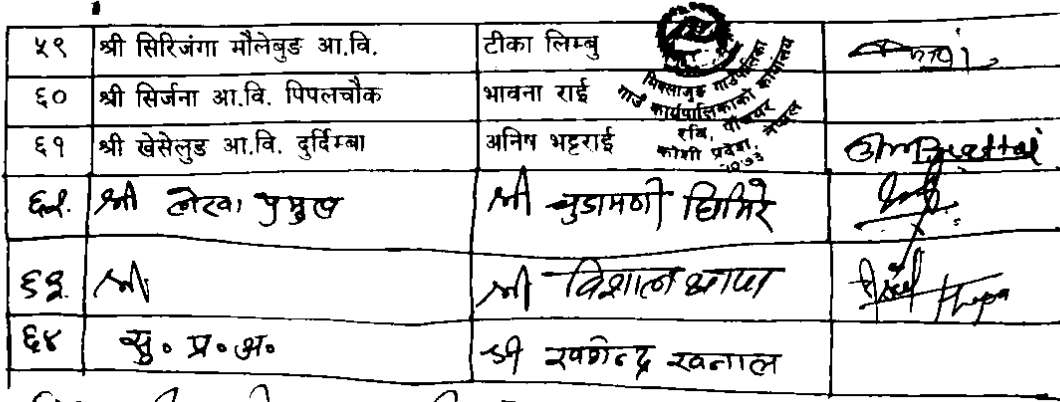 ५९ श्री सिरिजंगा मौलेबुङ आ.वि. टीका लिम्बु
६० श्री सिर्जना आ.वि. पिपलचौक भावना राई
६१ श्री खेसेलुङ आ.वि. दुर्दिम्बा अनिष भट्टराई
६२. श्री लेखा प्रमुख श्री चुडामणी घिमिरे
६३. श्री श्री विशाल थापा
६४ सु॰ प्र॰ अ॰ श्री खगेन्द्र खनाल
मिक्लाजुङ गाउँपालिका
गाउँ कार्यपालिकाको कार्यालय
रवि, पाँचथर
कोशी प्रदेश, नेपाल
२०७३